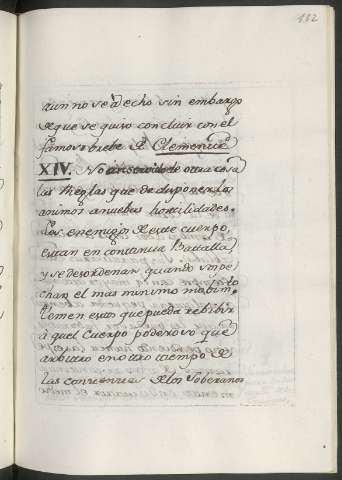 132
aun no se à echo sin embargo
de que se quiso concluir con el
famoso brebe de Clemente
XIV. No an servido de otra cosa
las Reglas que de disponer los
animos anuebas hostilidades.
Los enemigos de este cuerpo,
estan en continua Batalla
y se desordenan quando sospe
chan el mas minimo
temen esta que pueda rebibir
à quel Cuerpo poderoso que
arbitro en otro tiempo de
las conciencias de los Soberanos